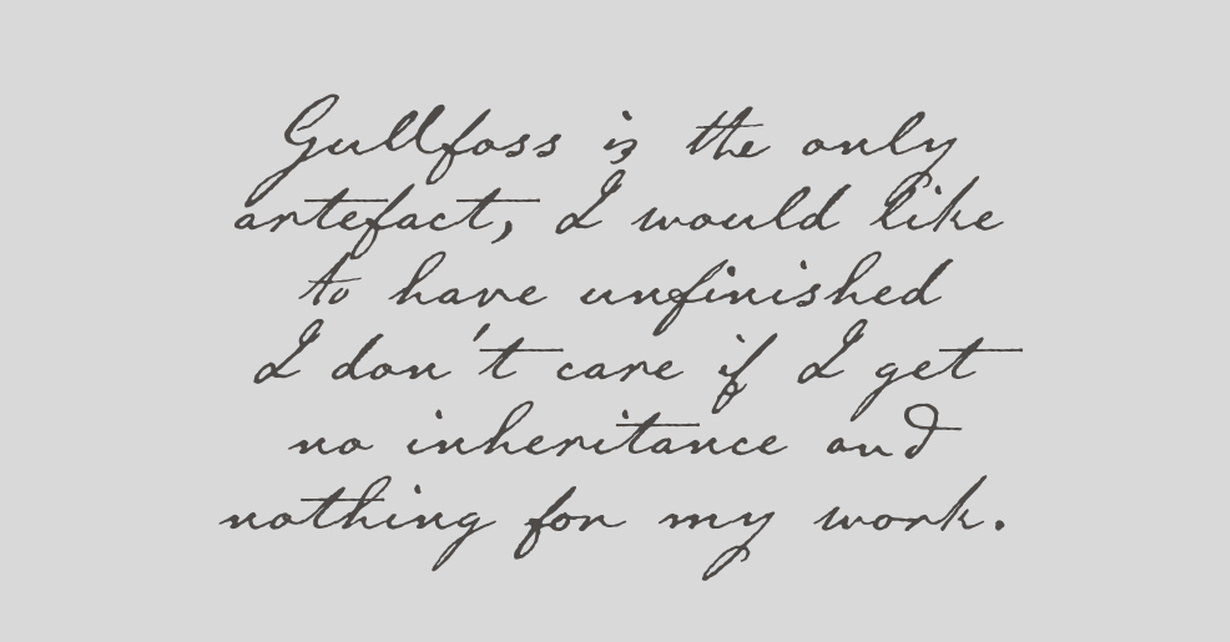 Gullfoss is the only
artefact, I would like
to have unfinished
I don't care if I get
no inheritance and
nothing for my work.